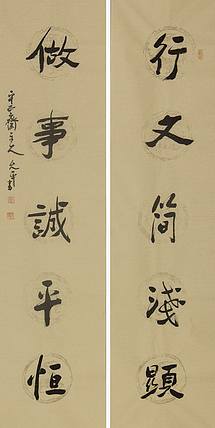 行文简淺顯
做事誠平恒